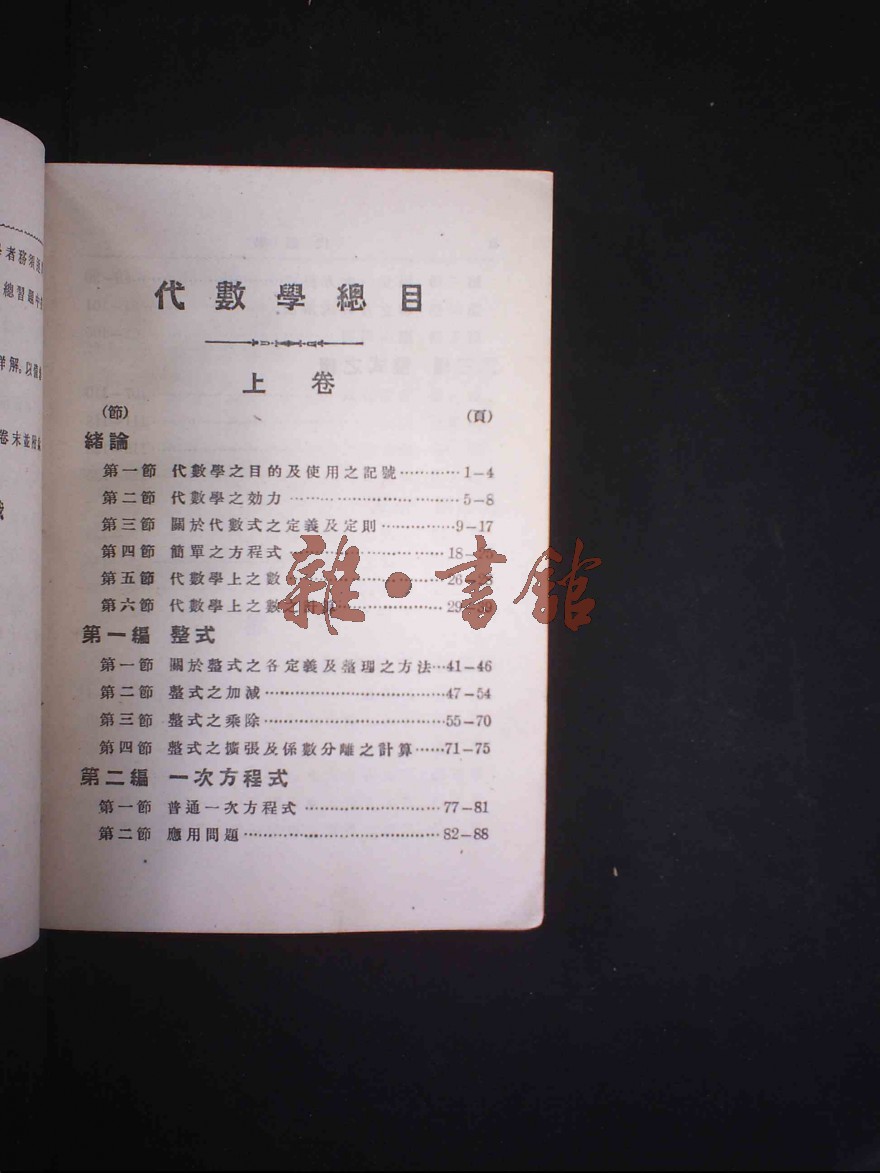 者務須
總習題中
詳解,以
卷末並附
代數學總目
上卷
(節) (頁)
緒論
第一節 代數學之目的及使用之記號…………1–4
第二節 代數學之効力…………………………5–8
第三節 關於代數式之定義及定則……………9–17
第四節 簡單之方程式…………………………18–
第五節 代數學上之數…………………………26–
第六節 代數學上之數之計算…………………29–
第一編 整式
第一節 關於整式之各定義及整理之方法…41–46
第二節 整式之加減……………………………47–54
第三節 整式之乘除……………………………55–70
第四節 整式之擴張及係數分離之計算……71–75
第二編 一次方程式
第一節 普通一次方程式………………………77–81
第二節 應用問題………………………………82–88
雜·書館